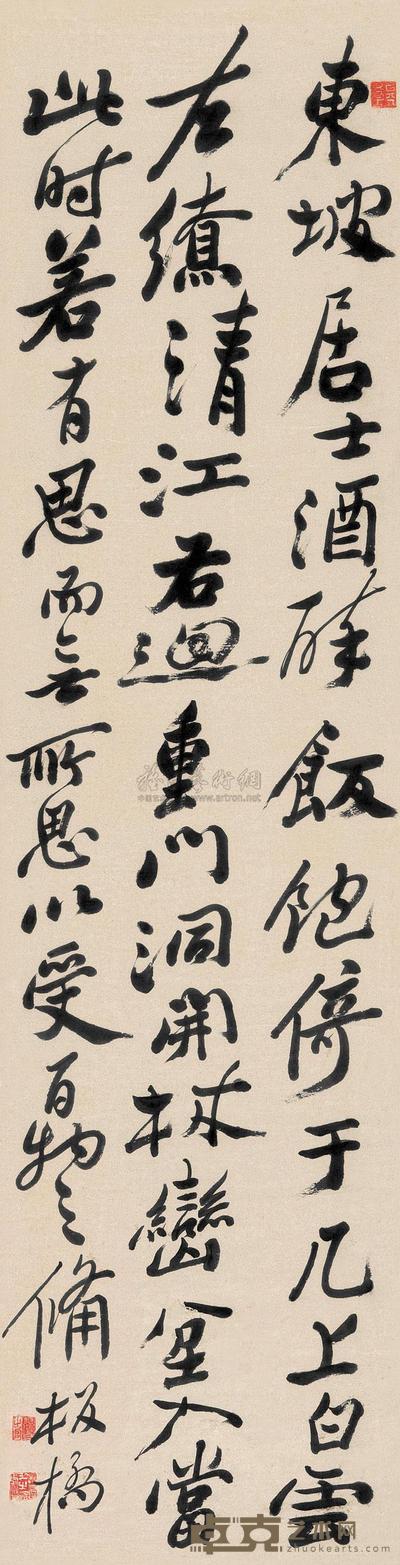 東坡居士酒醉飯飽倚于几上白雲
左繚清江右迴重門洞開林巒坌入當
此时若有思而無所思以受百物之備
板橋
www.artron.net
卓克艺术网
zhuokearts.com